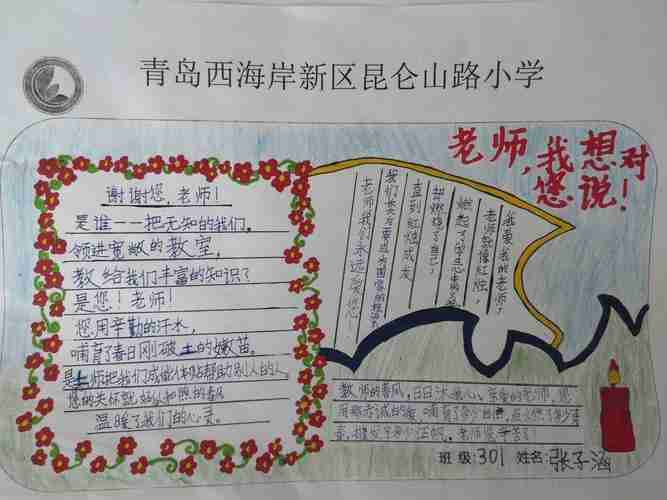 青岛西海岸新区昆仑山路小学
老师,我想对
您说!
谢谢您,老师!
是谁一一把无知的我们。
领进宽敞的教室,
教给我们丰富的知识?
是您!老师!
您用辛勤的汗水,
哺育了春日刚破土的嫩苗。
是老师把我们成体贴帮助别人的人
您的关怀就好似和煦的春风
温暖了我们的心灵。
我爱我的老师,
老师就像红烛,
燃起了
却燃烧了自己,
直到红烛成灰
我们长大要成为国家的
老师我们永远爱您
教师的春风,日日沐我心。亲爱的老师,您
老师您辛苦了!
班级:301 姓名:张子涵